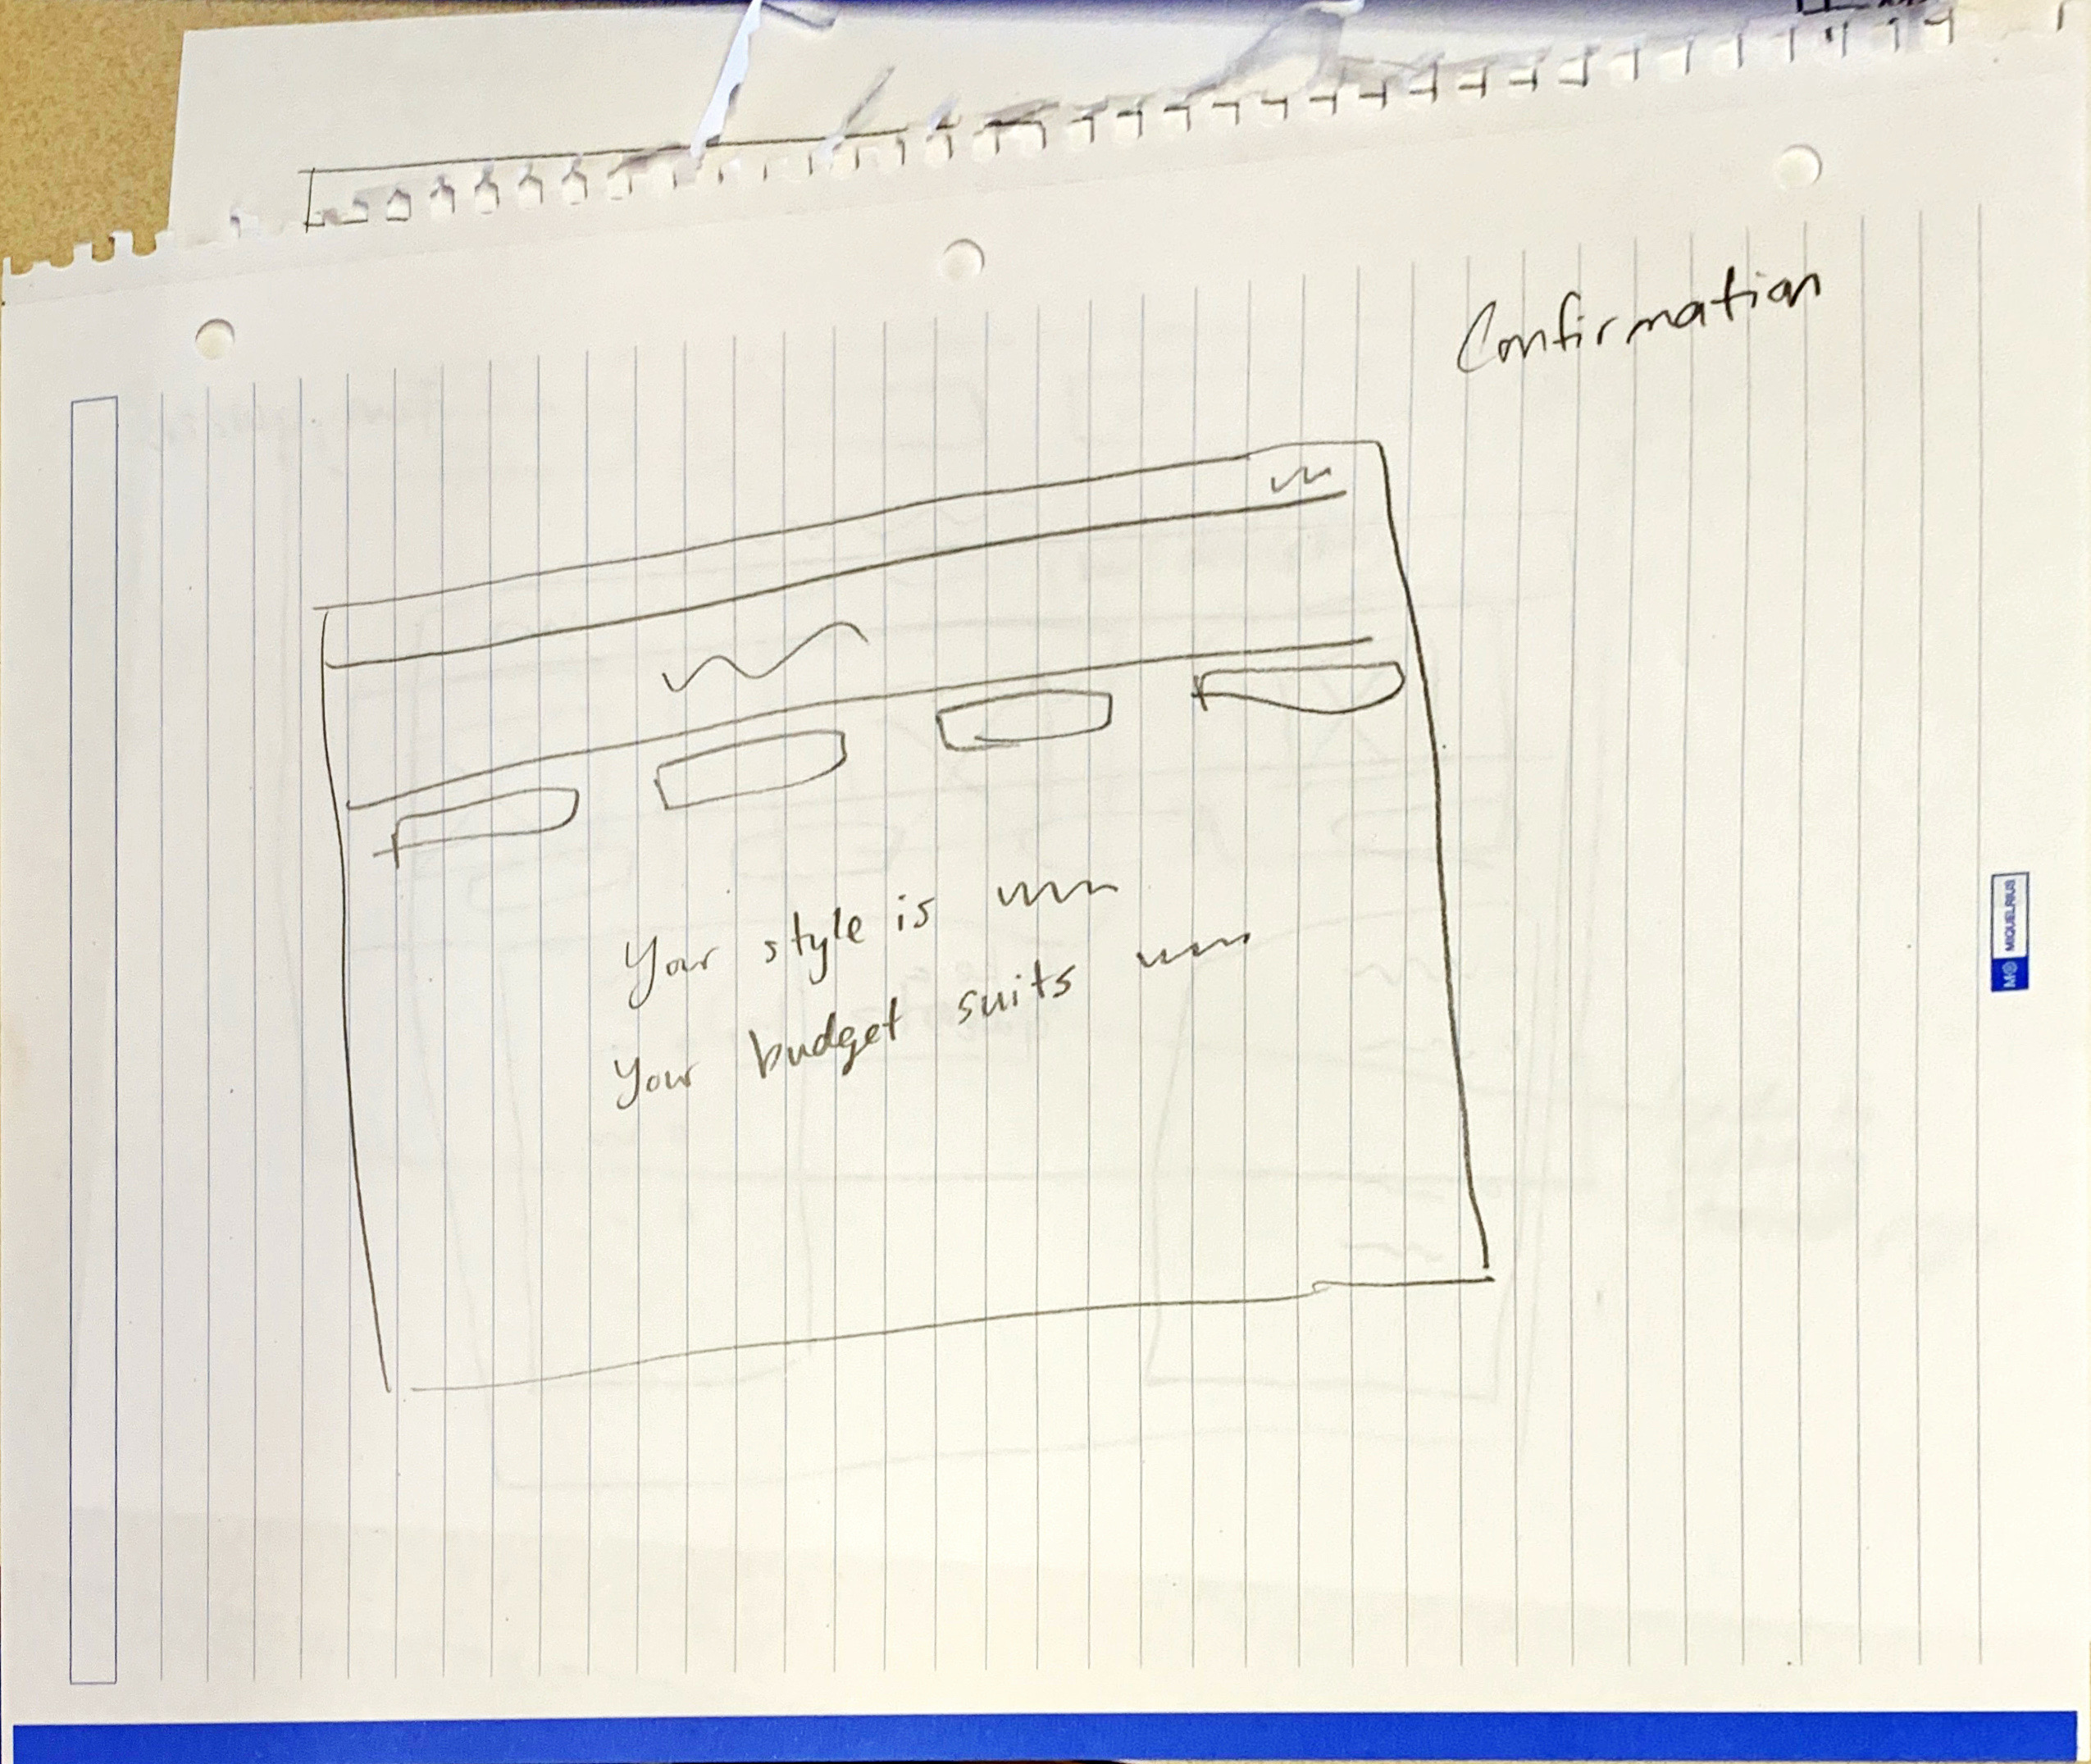 Confirmation
Your style is
Your budget suits
MIQUELRIUS